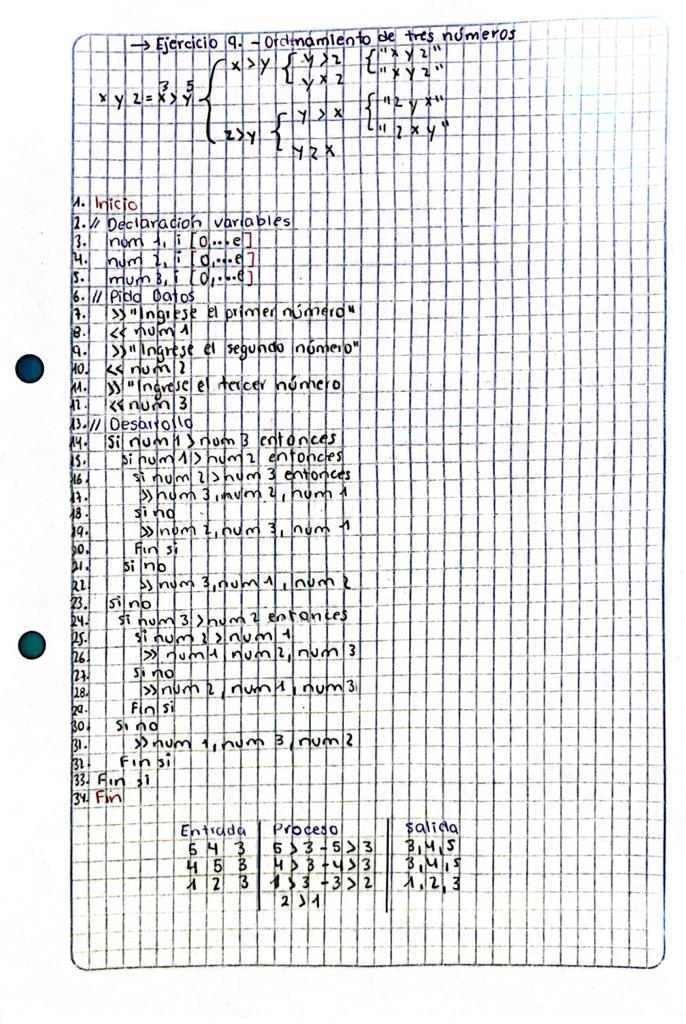 → Ejercicio 9. - Ordenamiento de tres números
x y z = x > y
3 5
x > y { y > z { "x y z"
y x z "x y z"
z > y { y > x { "z y x"
y z x "z x y"
1. Inicio
2. // Declaracion variables
3. num 1, i [0,...e]
4. num 2, i [0,...e]
5. mum 3, i [0,...e]
6. // Pido Datos
7. >> "Ingrese el primer número"
8. << num 1
9. >> "Ingrese el segundo número"
10. << num 2
11. >> "Ingrese el tercer número
12. << num 3
13. // Desarrollo
14. Si num 1 > num 3 entonces
15. si num 1 > num 2 entonces
16. si num 2 > num 3 entonces
17. >> num 3, num 2, num 1
18. si no
19. >> num 2, num 3, num 1
20. Fin si
21. si no
22. >> num 3, num 1, num 2
23. si no
24. si num 3 > num 2 entonces
25. si num 2 > num 1
26. >> num 1, num 2, num 3
27. si no
28. >> num 2, num 1, num 3
29. Fin si
30. Si no
31. >> num 1, num 3, num 2
32. Fin si
33. Fin si
34. Fin
Entrada Proceso Salida
5 4 3 5 > 3 - 5 > 3 3, 4, 5
4 5 3 4 > 3 - 4 > 3 3, 4, 5
1 2 3 1 > 3 - 3 > 2 1, 2, 3
2 > 1